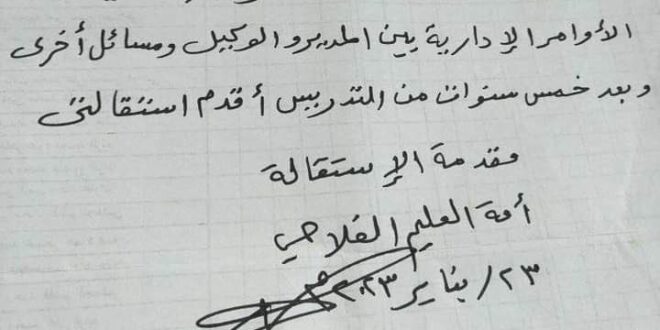 الأوامر الإدارية بين المدير والوكيل ومسائل أخرى
وبعد خمس سنوات من التدريس أقدم استقالتي
مقدمة الإستقالة
أمة العليم الفلاحي
٢٣/يناير ٢٠٢٣م